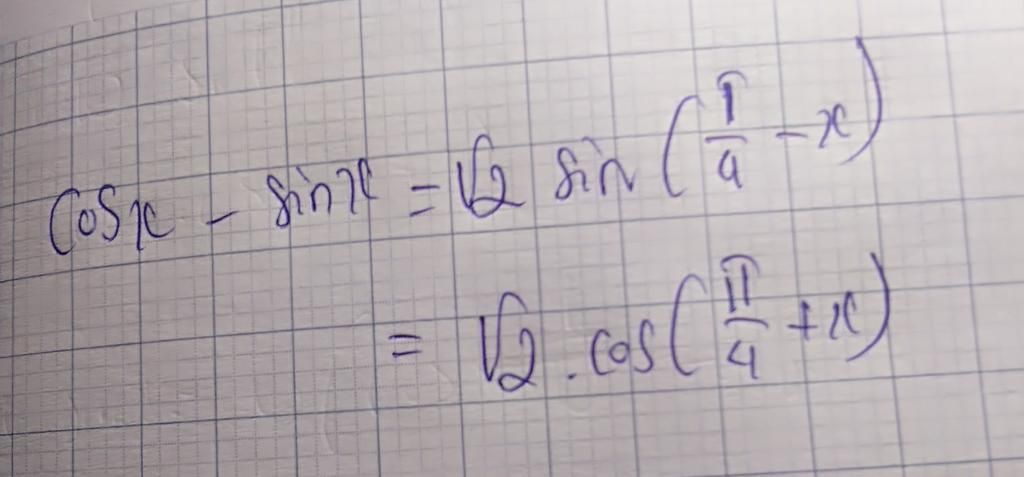 cos x - sin x = √2 sin(π/4 - x)
= √2 . cos(π/4 + x)